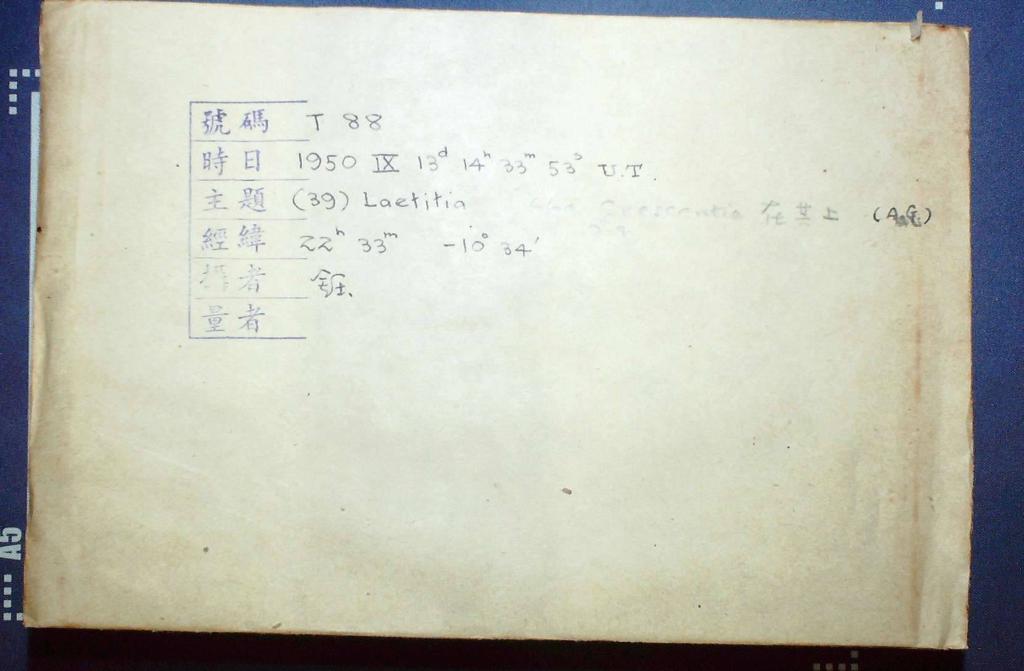 號碼 T 88
時日 1950 IX 13ᵈ 14ʰ 33ᵐ 53ˢ U.T.
主題 (39) Laetitia Crescentia 在其上 (A.G.)
經緯 22ʰ 33ᵐ -10° 34′
攝者 鈺.
量者
A5